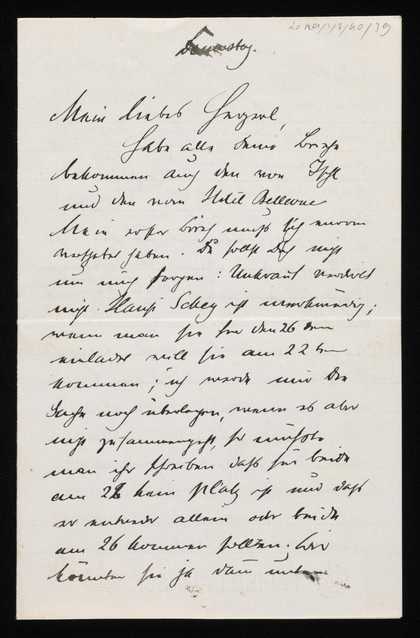 Donnerstag.
Mein liebes Herzerl,
Habe alle Deine Briefe
bekommen auch den von Ischl
und den vom Hotel Bellevue
Mein erster Brief muß sich enorm
verspätet haben. Du sollst Dich nicht
um mich sorgen: Unkraut verdirbt
nicht. Hansi Schey ist merkwürdig;
wenn man sie für den 26 ten
einladet will sie am 22 ten
kommen; ich werde mir die
Sache noch überlegen, wenn es aber
nicht zusammengeht, so müßte
man ihr schreiben daß für beide
am 22 kein Platz ist und daß
er entweder allein oder beide
am 26 kommen sollten. Wir
könnten sie ja dann